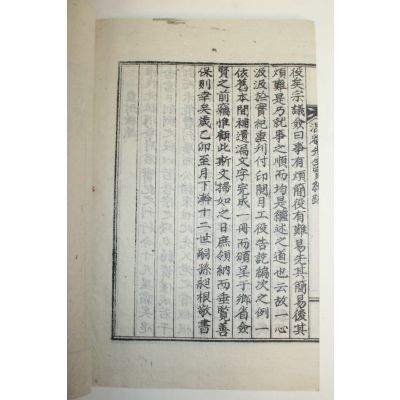 役矣宗議僉曰事有煩簡役有難易先其簡易後其
煩難是乃就事之順而均是繼述之道也云故一心
汲汲於實紀重刊付印閱月工役告訖編次之例一
依舊本間補遺漏文字完成一冊而頒呈于鄉省僉
賢之前竊惟顧此斯文掃如之日庶領納而垂覽善
保則幸矣歲乙卯至月下澣十二世嗣孫 根敬書
先生實紀